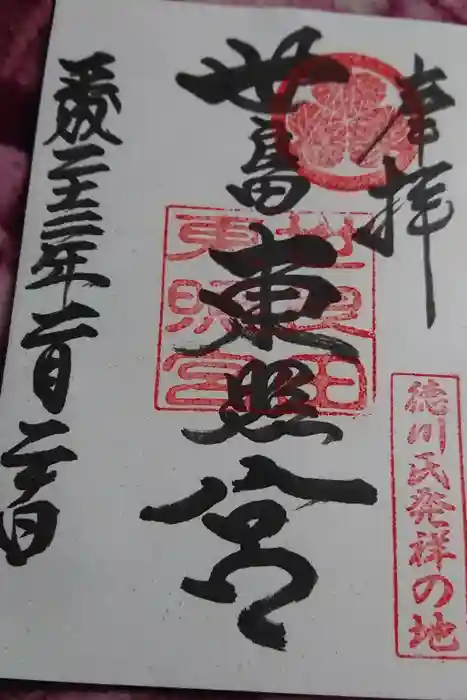 奉拝
徳川氏発祥の地
世良田東照宮
世良田
東照宮
平成二十三年二月二十日